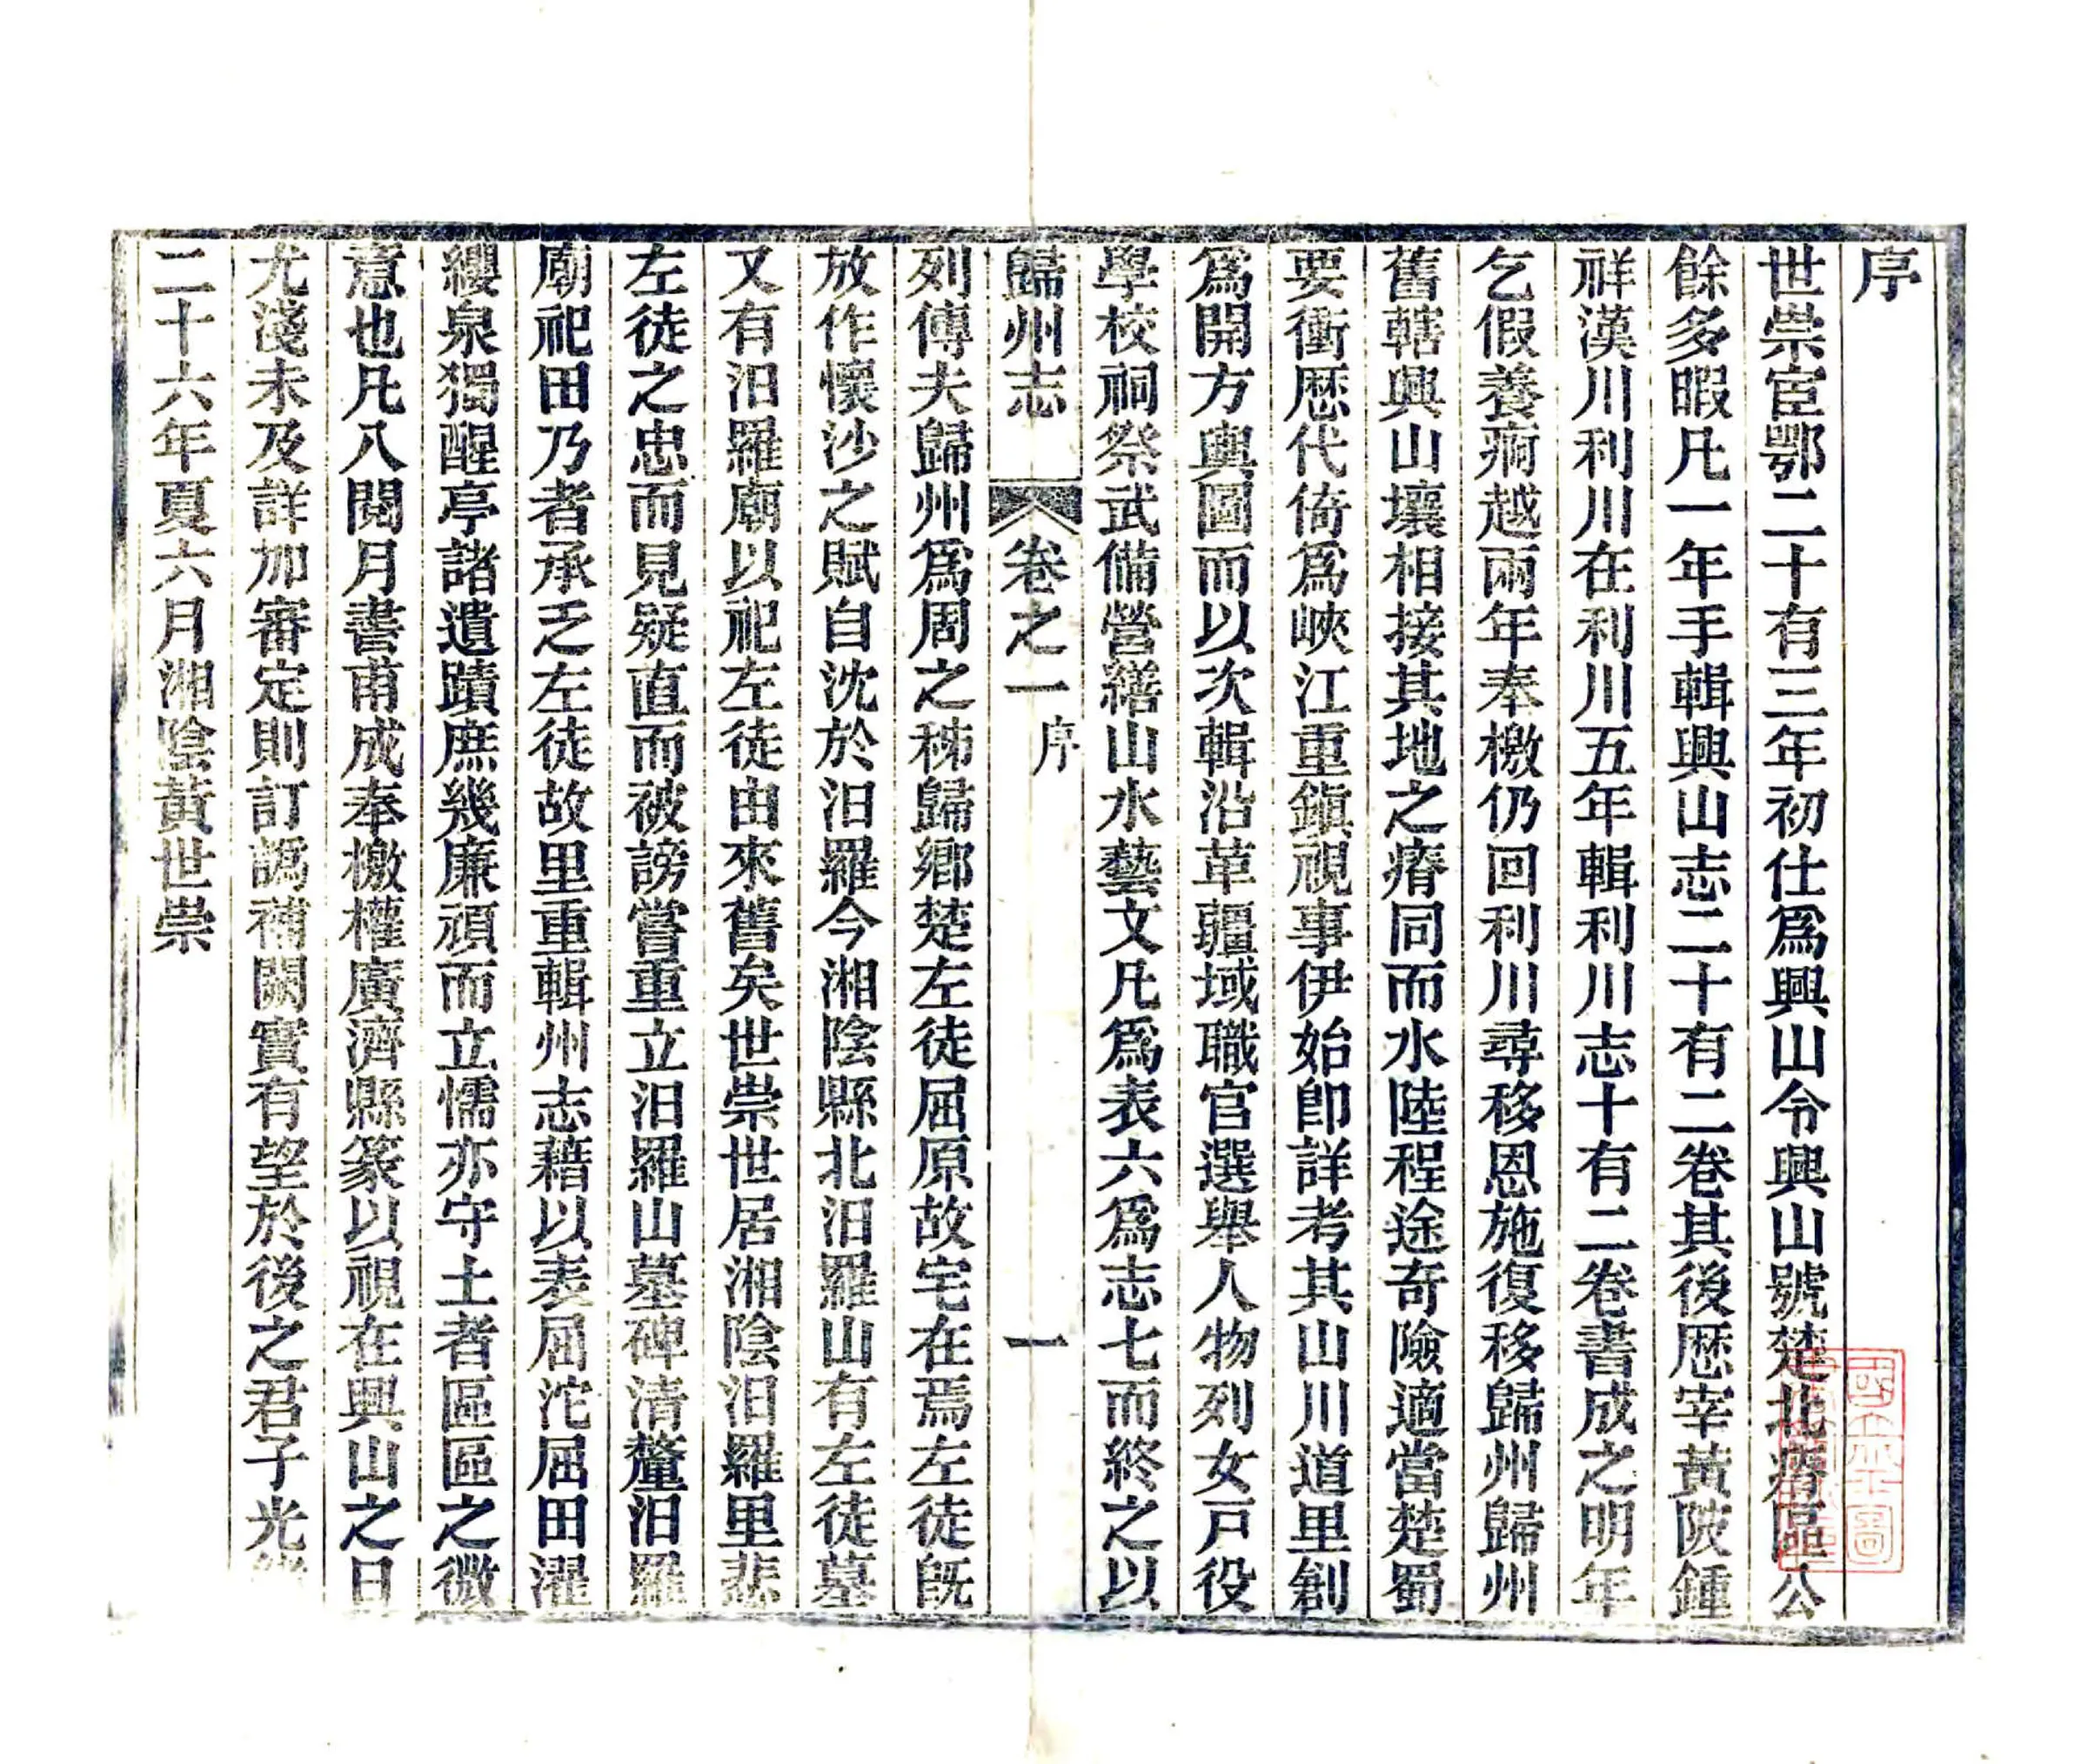 序
世崇宦鄂二十有三年初仕爲興山令興山號楚北瘠區公
餘多暇凡一年手輯興山志二十有二卷其後歴宰黃陂鍾
祥漢川利川在利川五年輯利川志十有二卷書成之明年
乞假養疴越兩年奉檄仍回利川尋移恩施復移歸州歸州
舊轄興山壤相接其地之瘠同而水陸程途奇險適當楚蜀
要衝歴代倚爲峽江重鎭視事伊始卽詳考其山川道里創
爲開方輿圖而以次輯沿革疆域職官選舉人物列女戸役
學校祠祭武備營繕山水藝文凡爲表六爲志七而終之以
歸州志 卷之一 序 一
列傳夫歸州爲周之秭歸鄉楚左徒屈原故宅在焉左徒旣
放作懷沙之賦自沈於汨羅今湘陰縣北汨羅山有左徒墓
又有汨羅廟以祀左徒由來舊矣世崇世居湘陰汨羅里悲
左徒之忠而見疑直而被謗嘗重立汨羅山墓碑清釐汨羅
廟祀田乃者承乏左徒故里重輯州志藉以表屈沱屈田濯
纓泉獨醒亭諸遺蹟庶幾廉頑而立懦亦守土者區區之微
意也凡八閱月書甫成奉檄權廣濟縣篆以視在興山之日
尤淺未及詳加審定則訂譌補闕實有望於後之君子光緒
二十六年夏六月湘陰黃世崇